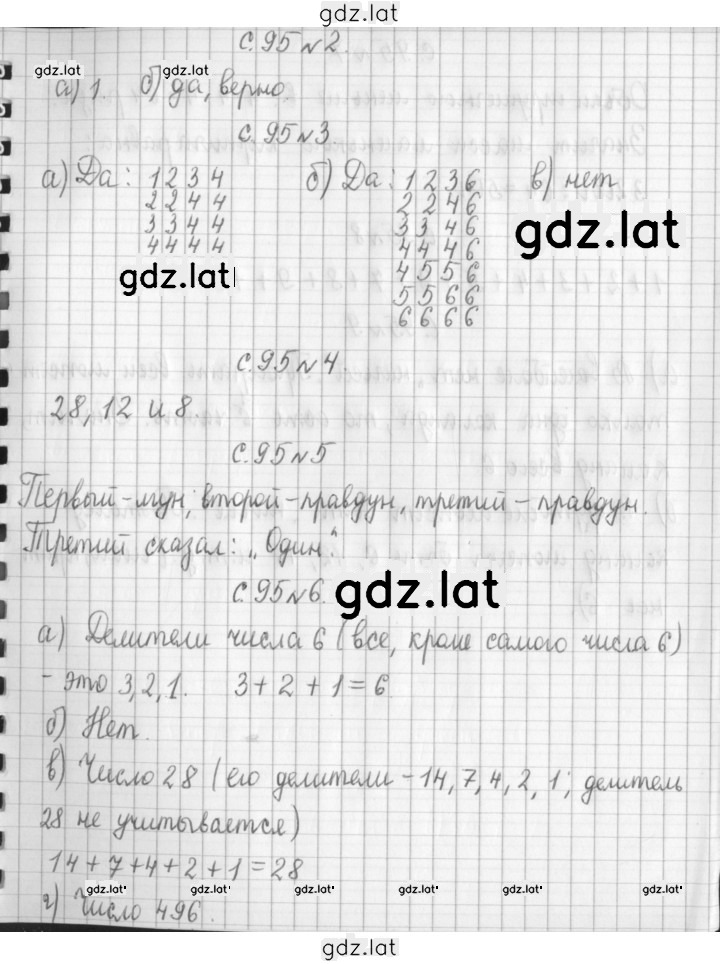 gdz.lat
с.95 №2.
gdz.lat
gdz.lat
а) 1. б) да, верно
с.95 №3
а) Да: 1 2 3 4
2 2 4 4
3 3 4 4
4 4 4 4
б) Да: 1 2 3 6
2 2 4 6
3 3 4 6
4 4 4 6
4 5 5 6
5 5 6 6
6 6 6 6
в) нет
gdz.lat
gdz.lat
с.95 №4.
28, 12 и 8.
с.95 №5
Первый - лгун, второй - правдун, третий - правдун.
Третий сказал: „Один“
с.95 №6.
gdz.lat
а) Делители числа 6 (все, кроме самого числа 6)
- это 3, 2, 1. 3 + 2 + 1 = 6
б) Нет.
в) Число 28 (его делители - 14, 7, 4, 2, 1; делитель
28 не учитывается)
14 + 7 + 4 + 2 + 1 = 28
gdz.lat
gdz.lat
gdz.lat
gdz.lat
г) Число 496.
gdz.lat